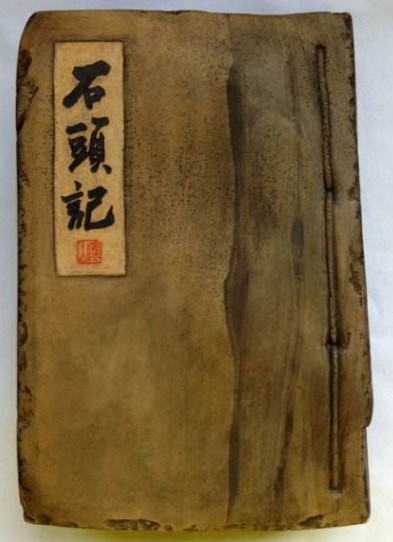 石頭記